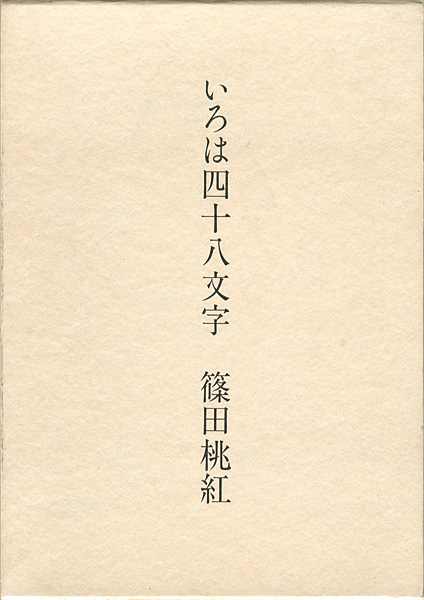 いろは四十八文字　篠田桃紅